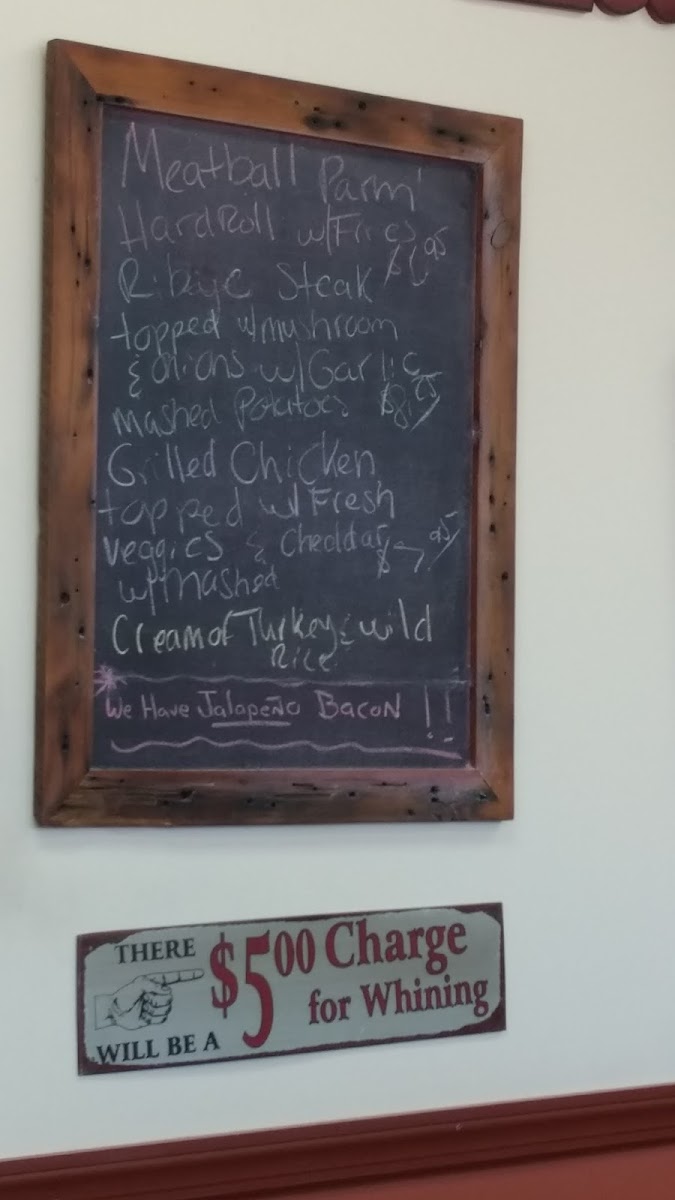 Meatball Parm'
Hard Roll w/Fries $6.95
Ribeye Steak
topped w/mushroom
& onions w/Garlic
Mashed Potatoes
Grilled Chicken
topped w/Fresh
veggies & cheddar $7.95
w/mashed
Cream of Turkey & wild
Rice
We Have Jalapeño Bacon !!
THERE
WILL BE A
$5.00 Charge
for Whining